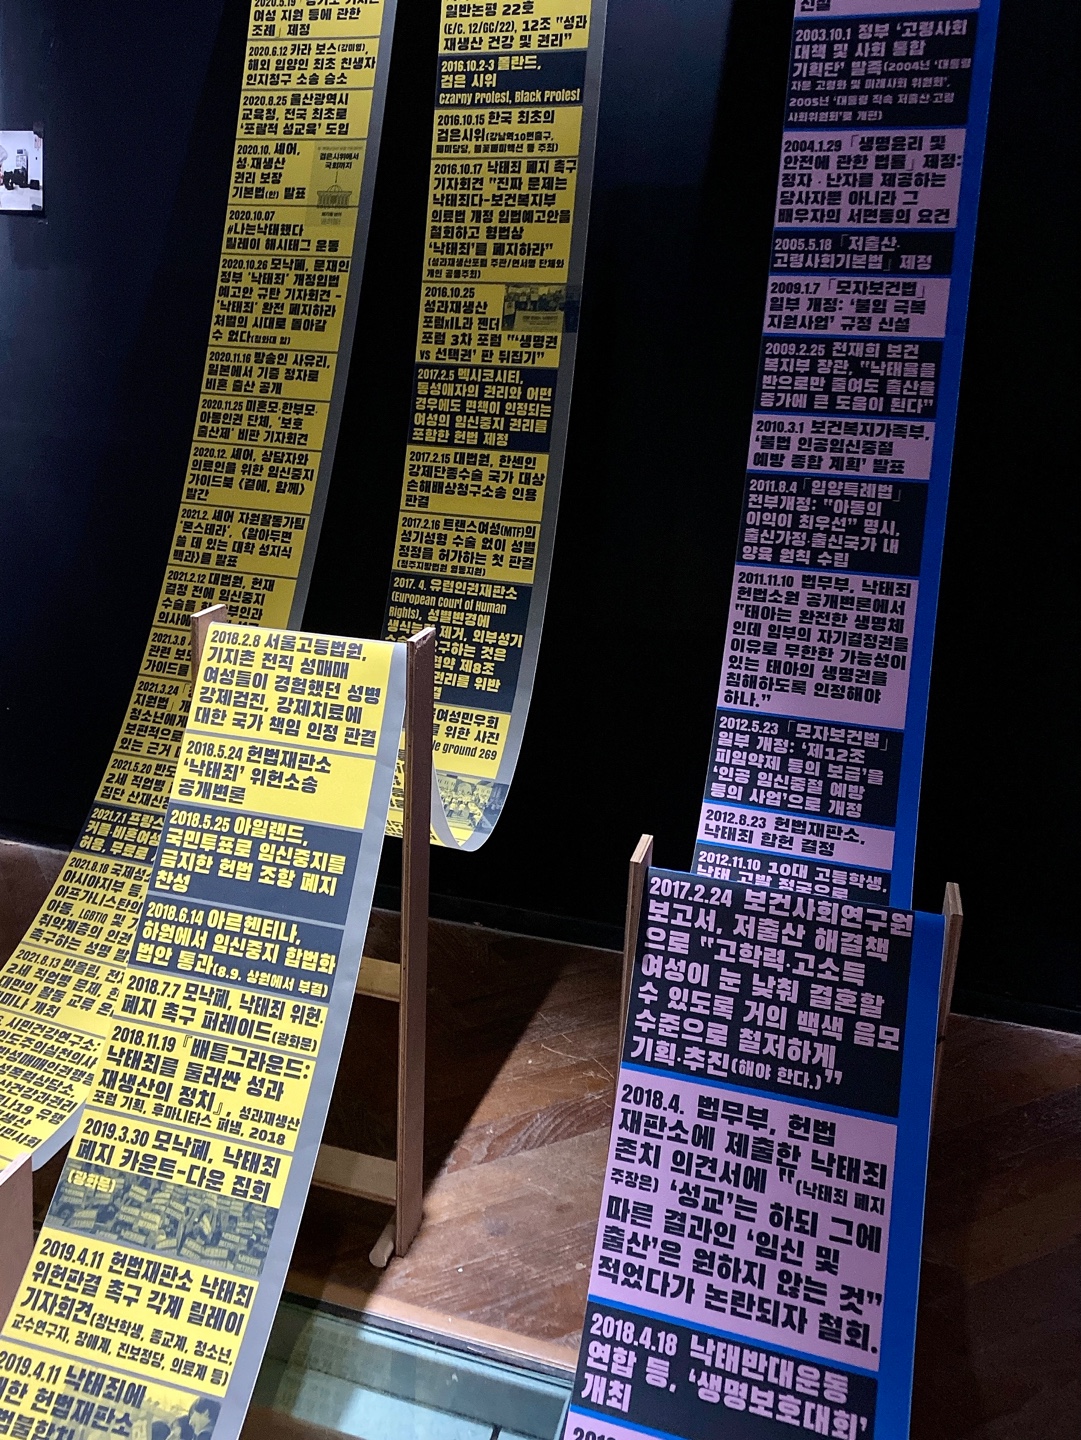 여성 지원 등에 관한
조례」 제정
2020.6.12 카라 보스(강미숙),
해외 입양인 최초 친생자
인지청구 소송 승소
2020.8.25 울산광역시
교육청, 전국 최초로
'포괄적 성교육' 도입
2020.10. 셰어,
성·재생산
권리 보장
기본법(안) 발표
검은시위에서
국회까지
2020.10.07
#나는낙태했다
릴레이 해시태그 운동
2020.10.26 모낙폐, 문재인
정부 '낙태죄' 개정입법
예고안 규탄 기자회견 -
'낙태죄' 완전 폐지하라
처벌의 시대로 돌아갈
수 없다(청와대 앞)
2020.11.16 방송인 사유리,
일본에서 기증 정자로
비혼 출산 공개
2020.11.25 미혼모·한부모·
아동인권 단체, '보호
출산제' 비판 기자회견
2020.12. 셰어, 상담자와
의료인을 위한 임신중지
가이드북 <곁에, 함께>
발간
2021.2. 셰어 자원활동가팀
'몬스테라', <알아두면
쓸 데 있는 대학 성지식
백과>를 발표
2021.2.12 대법원, 헌재
결정 전에 임신중지
수술을
의사에
2021.3.8
관련 보
가이드를
2021.3.24
지원법
청소년에게
보편적으로
있는 근거
2021.5.20 반도
2세 직업병
집단 산재신
2021.7.1 프랑스
커플·비혼여성
허용, 무료
2021.8.16 국제성
아시아지부 등,
아프가니스탄의
아동, LGBTIQ 및
취약계층의 인권
촉구하는 성명 발
2021.8.13 반올림,
2세 직업병 문제
대만의 활동 교류
세미나 개최
시민건강연구소
일반논평 22호
(E/C. 12/GC/22), 12조 "성과
재생산 건강 및 권리"
2016.10.2-3 폴란드,
검은 시위
Czarny Protest, Black Protest
2016.10.15 한국 최초의
검은시위(강남역10번출구,
페미당당, 불꽃페미액션 등 주최)
2016.10.17 낙태죄 폐지 촉구
기자회견 "진짜 문제는
낙태죄다-보건복지부
의료법 개정 입법예고안을
철회하고 형법상
'낙태죄'를 폐지하라"
(성과재생산포럼 주관/연서명 단체와
개인 공동주최)
2016.10.25
성과재생산
포럼XIL과 젠더
포럼 3차 포럼 "'생명권
vs 선택권' 판 뒤집기"
2017.2.5 멕시코시티,
동성애자의 권리와 어떤
경우에도 면책이 인정되는
여성의 임신중지 권리를
포함한 헌법 제정
2017.2.15 대법원, 한센인
강제단종수술 국가 대상
손해배상청구소송 인용
판결
2017.2.16 트랜스여성(MTF)의
성기성형 수술 없이 성별
정정을 허가하는 첫 판결
(청주지방법원 영동지원)
2017. 4. 유럽인권재판소
(European Court of Human
Rights), 성별변경에
생식능력 제거, 외부성기
구하는 것은
협약 제8조
권리를 위반
여성민우회
위한 사진
ground 269
2018.2.8 서울고등법원,
기지촌 전직 성매매
여성들이 경험했던 성병
강제검진, 강제치료에
대한 국가 책임 인정 판결
2018.5.24 헌법재판소
'낙태죄' 위헌소송
공개변론
2018.5.25 아일랜드,
국민투표로 임신중지를
금지한 헌법 조항 폐지
찬성
2018.6.14 아르헨티나,
하원에서 임신중지 합법화
법안 통과(8.9. 상원에서 부결)
2018.7.7 모낙폐, 낙태죄 위헌·
폐지 촉구 퍼레이드(광화문)
2018.11.19 『배틀그라운드:
낙태죄를 둘러싼 성과
재생산의 정치』, 성과재생산
포럼 기획, 후마니타스 펴냄, 2018
2019.3.30 모낙폐, 낙태죄
폐지 카운트-다운 집회
(광화문)
2019.4.11 헌법재판소 낙태죄
위헌판결 촉구 각계 릴레이
기자회견(청년학생, 종교계, 청소년,
교수연구자, 장애계, 진보정당, 의료계 등)
2019.4.11 낙태죄에
대한 헌법재판소
헌법불합치
2003.10.1 정부 '고령사회
대책 및 사회 통합
기획단' 발족(2004년 '대통령
자문 고령화 및 미래사회 위원회',
2005년 '대통령 직속 저출산·고령
사회위원회'로 개편)
2004.1.29 「생명윤리 및
안전에 관한 법률」 제정:
정자·난자를 제공하는
당사자뿐 아니라 그
배우자의 서면동의 요건
2005.5.18 「저출산·
고령사회기본법」 제정
2009.1.7 「모자보건법」
일부 개정: '불임 극복
지원사업' 규정 신설
2009.2.25 전재희 보건
복지부 장관, "낙태율을
반으로만 줄여도 출산율
증가에 큰 도움이 된다"
2010.3.1 보건복지가족부,
'불법 인공임신중절
예방 종합 계획' 발표
2011.8.4 「입양특례법」
전부개정: "아동의
이익이 최우선" 명시,
출신가정·출신국가 내
양육 원칙 수립
2011.11.10 법무부, 낙태죄
헌법소원 공개변론에서
"태아는 완전한 생명체
인데 임부의 자기결정권을
이유로 무한한 가능성이
있는 태아의 생명권을
침해하도록 인정해야
하나."
2012.5.23 「모자보건법」
일부 개정: '제12조
피임약제 등의 보급'을
'인공 임신중절 예방
등의 사업'으로 개정
2012.8.23 헌법재판소,
낙태죄 합헌 결정
2012.11.10 10대 고등학생,
2017.2.24 보건사회연구원
보고서, 저출산 해결책
으로 "고학력·고소득
여성이 눈 낮춰 결혼할
수 있도록 거의 백색 음모
수준으로 철저하게
기획·추진(해야 한다.)"
2018.4. 법무부, 헌법
재판소에 제출한 낙태죄
존치 의견서에 "(낙태죄 폐지
주장은) '성교'는 하되 그에
따른 결과인 '임신 및
출산'은 원하지 않는 것"
적었다가 논란되자 철회.
2018.4.18 낙태반대운동
연합 등, '생명보호대회'
개최